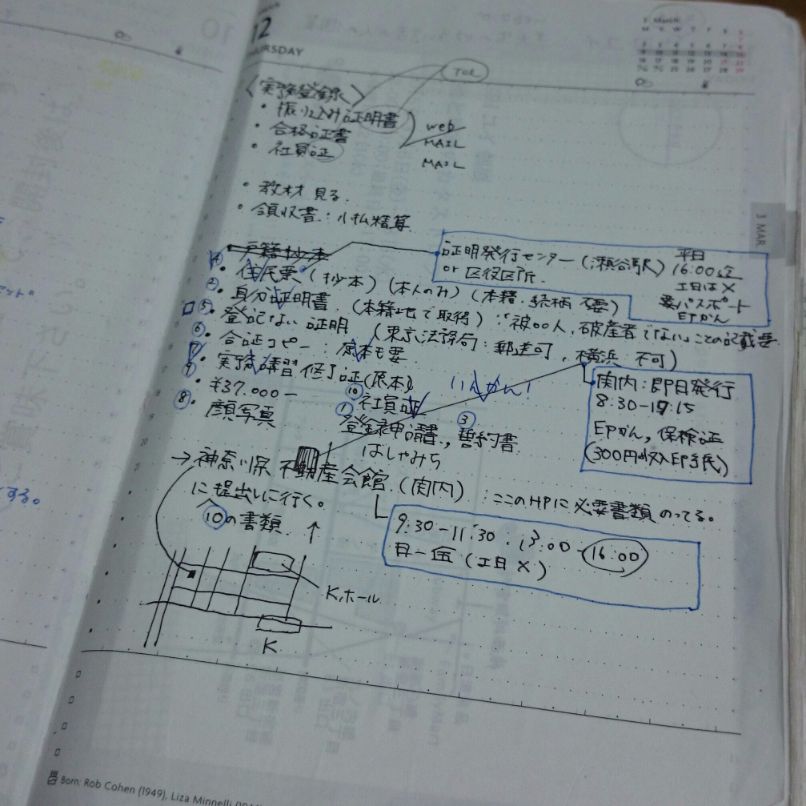 12
THURSDAY
March
TOEL
〈実務登録〉
・振り込み証明書
・合格証書
・社員証
web
MAIL
MAIL
・教材見る。
・領収書:小払精算
・戸籍抄本
証明発行センター(瀬谷駅)
or 区役区所.
平日
16:00迄
土日は×
要パスポート
EPかん
④・住民票(抄本)(本人のみ)(本籍・続柄 不要)
②・身分証明書.(本籍地で取得):"被〇〇人,破産者でない"ことの記載要
⑤・登記ない証明 (東京法務局:郵送可,横浜 不可)
⑥・合証コピー:原本も要
⑦・実務講習修了証(原本)
⑨・¥37.000-
⑧・顔写真
⑩社員証
いんかん!
①登録申請書,③誓約書
はしゃみち
関内:即日発行
8:30-17:15
EPかん,保険証
(300円収入EP手氏)
→神奈川県不動産会館(関内):ここのHPに必要書類のってる。
に提出しに行く。
⑩の書類
9:30-11:30・13:00-16:00
月-金(土日×)
K.ホール
K
3 MAR
Born: Rob Cohen (1949), Liza Minnelli